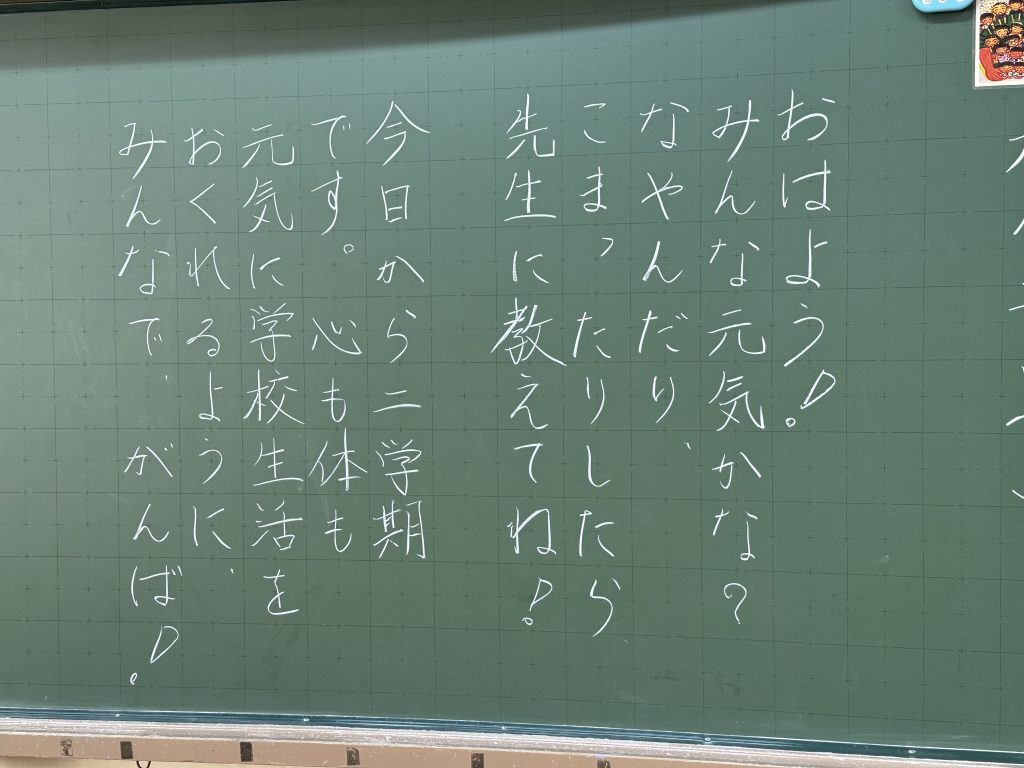 おはよう!
みんな元気かな?
なやんだり、
こまったりしたら
先生に教えてね!
今日から二学期
です。心も体も
元気に学校生活を
おくれるように、
みんなで、がんば!